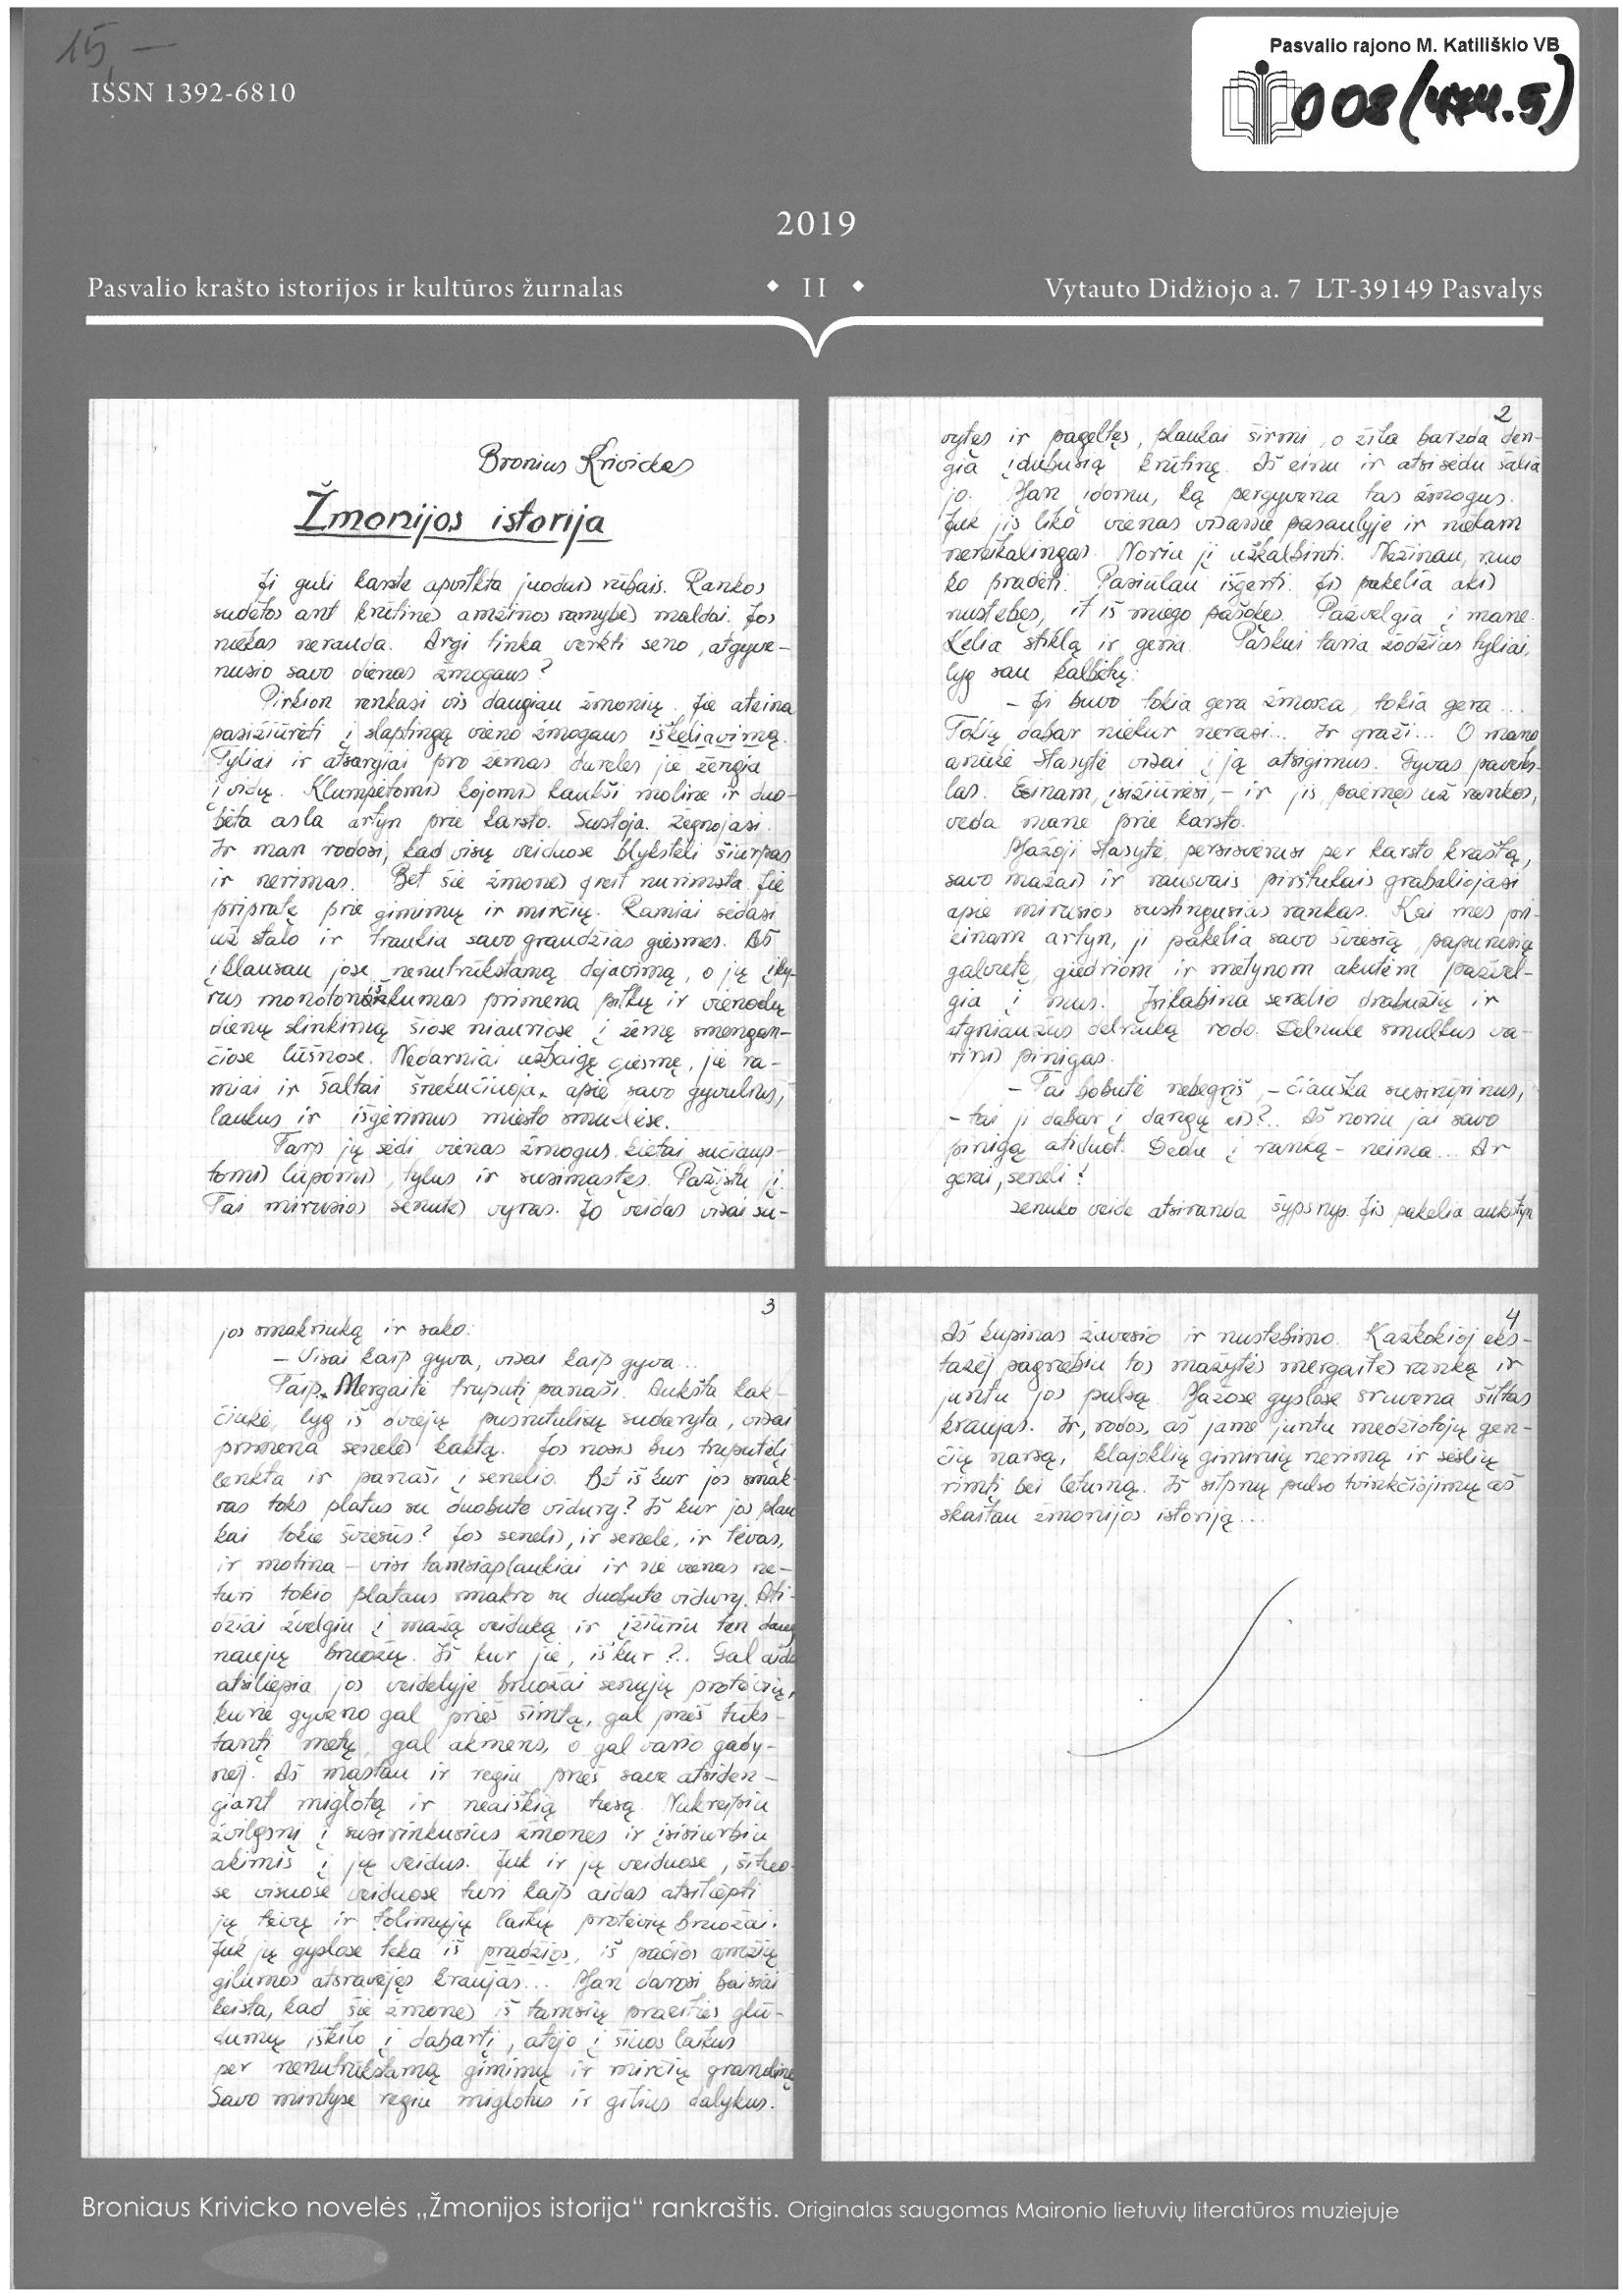 15,—
ISSN 1392-6810
Pasvalio rajono M. Katiliškio VB
008(474.5)
2019
Pasvalio krašto istorijos ir kultūros žurnalas
• II •
Vytauto Didžiojo a. 7 LT-39149 Pasvalys
Bronius Krivickas
Žmonijos istorija
Ji guli karste apvilkta juodais rūbais. Rankos
sudėtos ant krūtinės amžinos ramybės maldai. Jos
niekas nerauda. Argi tinka verkti seno, atgyve-
nusio savo dienas žmogaus?
Pirkion renkasi vis daugiau žmonių. Jie ateina
pasižiūrėti į slaptingą vieno žmogaus iškeliavimą.
Tyliai ir atsargiai pro žemas dureles jie žengia
į vidų. Klumpėtomis kojomis kaukši moline ir duo-
bėta asla artyn prie karsto. Sustoja. Žegnojasi.
Ir man rodosi, kad visų veiduose blyksteli šiurpas
ir nerimas. Bet šie žmonės greit nurimsta. Jie
pripratę prie gimimų ir mirčių. Ramiai sėdasi
už stalo ir traukia savo graudžias giesmes. Aš
įklausau jose nenutrūkstamą dejavimą, o jų įky-
rus monotoniškumas primena pilkų ir vienodų
dienų slinkimą šiose niauriose į žemę smengan-
čiose lūšnose. Nedarniai užbaigę giesmę, jie ra-
miai ir šaltai šnekučiuoja apie savo gyvulius,
laukus ir išgėrimus miesto smuklėse.
Tarp jų sėdi vienas žmogus kietai sučiaup-
tomis lūpomis, tylus ir susimąstęs. Pažįstu jį.
Tai mirusios senutės vyras. Jo veidas visai su-
2
vytęs ir pageltęs, plaukai širmi, o žila barzda den-
gia įdubusią krūtinę. Aš einu ir atsisėdu šalia
jo. Man įdomu, ką pergyvena tas žmogus.
Juk jis liko vienas visame pasaulyje ir niekam
nereikalingas. Noriu jį užkalbinti. Nežinau, nuo
ko pradėti. Pasiūlau išgerti. Jis pakelia akis
nustebęs, it iš miego pašokęs. Pažvelgia į mane.
Kelia stiklą ir geria. Paskui taria žodžius tyliai,
lyg sau kalbėtų:
– Ji buvo tokia gera žmona, tokia gera...
Tokių dabar niekur nerasi... Ir graži... O mano
anūkė Stasytė visai į ją atsigimus. Gyvas paveiks-
las. Einam, įsižiūrėsi, – ir jis, paėmęs už rankos,
veda mane prie karsto.
Mažoji Stasytė, persisvėrusi per karsto kraštą,
savo mažais ir rausvais pirštukais grabaliojasi
apie mirusios sustingusias rankas. Kai mes pri-
einam artyn, ji pakelia savo šviesią, papurusią
galvutę, giedriom ir mėtynom akutėm pažvel-
gia į mus. Įsikabina senelio drabužių ir
atgniaužus delniuką rodo. Delniuke smulkus va-
rinis pinigas.
– Tai bobutė nebegrįš, – čiauška susirūpinus,
– tai ji dabar į dangų eis?.. Aš noriu jai savo
pinigą atiduot. Dedu į ranką – neima... Ar
gerai, seneli?
Senuko veide atsiranda šypsnys. Jis pakelia aukštyn
3
jos smakriuką ir sako:
– Visai kaip gyva, visai kaip gyva...
Taip. Mergaitė truputį panaši. Aukšta kak-
čiukė, lyg iš dviejų pusrutulių sudaryta, visai
primena senelės kaktą. Jos nosis bus truputėlį
lenkta ir panaši į senelio. Bet iš kur jos smak-
ras toks platus su duobute vidury? Iš kur jos plau
kai tokie šviesūs? Jos senelis, ir senelė, ir tėvas,
ir motina – visi tamsiaplaukiai ir nė vienas ne-
turi tokio plataus smakro su duobute vidury. Ati-
džiai žvelgiu į mažą veiduką ir įžiūriu ten daug
naujų bruožų. Iš kur jie, iš kur?.. Gal aidu
atsiliepia jos veidelyje bruožai senųjų protėvių,
kurie gyveno gal prieš šimtą, gal prieš tūks-
tantį metų, gal akmens, o gal vario gady-
nėj. Aš mąstau ir regiu prieš save atsiden-
giant miglotą ir neaiškią tiesą. Nukreipiu
žvilgsnį į susirinkusius žmones ir įsisiurbiu
akimis į jų veidus. Juk ir jų veiduose, šituo-
se visuose veiduose turi kaip aidas atsiliepti
jų tėvų ir tolimųjų laikų protėvių bruožai.
Juk jų gyslose teka iš pradžios, iš pačios amžių
gilumos atsravėjęs kraujas... Man darosi baisiai
keista, kad šie žmonės iš tamsių praeities glū-
dumų iškilo į dabartį, atėjo į šiuos laikus
per nenutrūkstamą gimimų ir mirčių grandinę
Savo mintyse regiu miglotus ir gilius dalykus.
4
Aš kupinas žavesio ir nustebimo. Kažkokioj eks-
tazėj pagriebiu tos mažytės mergaitės ranką ir
juntu jos pulsą. Mažose gyslose sruvena šiltas
kraujas. Ir, rodos, aš jame juntu medžiotojų gen-
čių narsą, klajoklių giminių nerimą ir sėslių
rimtį bei lėtumą. Iš silpnų pulso tvinkčiojimų aš
skaitau žmonijos istoriją...
Broniaus Krivicko novelės „Žmonijos istorija“ rankraštis. Originalas saugomas Maironio lietuvių literatūros muziejuje